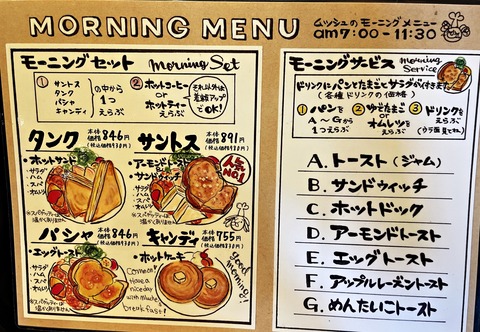 MORNING MENU
ムッシュのモーニングメニュー
am7:00-11:30
モーニングセット Morning Set
①
サントス
タンク
パシャ
キャンディ
の中から
1つ
えらぶ
②
ホットコーヒー
or
ホットティー
えらぶ
それ以外は
差額アップで
OK!
タンク 本体価格846円
・ホットサンド
・サラダ
・ハム
・スパ
・オムレツ
※スパゲッティーは
温かくありません
サントス 本体価格891円
・アーモンドトースト
・サンドウィッチ
サラダ
ハム
スパ
人気
NO.1
パシャ 本体価格846円
・エッグトースト
・サラダ
・ハム
・スパ
・オムレツ
※スパゲッティーは
温かくありません
キャンディ 本体価格755円
・ホットケーキ
Come on!
Have a
nice day
breakfast!
good morning!
モーニングサービス Morning Service
ドリンクにパンとたまごとサラダが付きます。
(各種ドリンクの価格)
①パンを
A～Gから
1つえらぶ
②ゆでたまご
or
オムレツを
えらぶ
③ドリンクを
えらぶ
(ウラ面見てね)
A. トースト (ジャム)
B. サンドウィッチ
C. ホットドック
D. アーモンドトースト
E. エッグトースト
F. アップルレーズントースト
G. めんたいこトースト